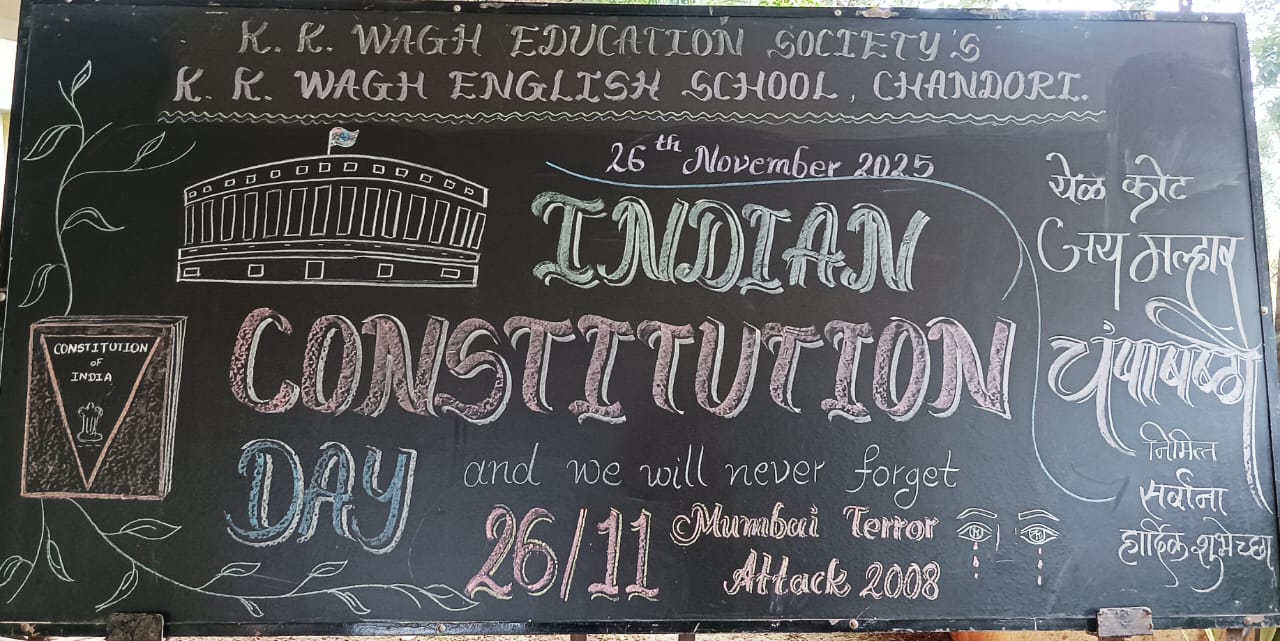 K. K. WAGH EDUCATION SOCIETY'S
K. K. WAGH ENGLISH SCHOOL, CHANDORI.
26th November 2025
INDIAN
CONSTITUTION
DAY
and we will never forget
26/11
Mumbai Terror
Attack 2008
CONSTITUTION
OF
INDIA
येळ कोट
जय मल्हार
चंपाषष्ठी
निमित्त
सर्वांना
हार्दिक शुभेच्छा